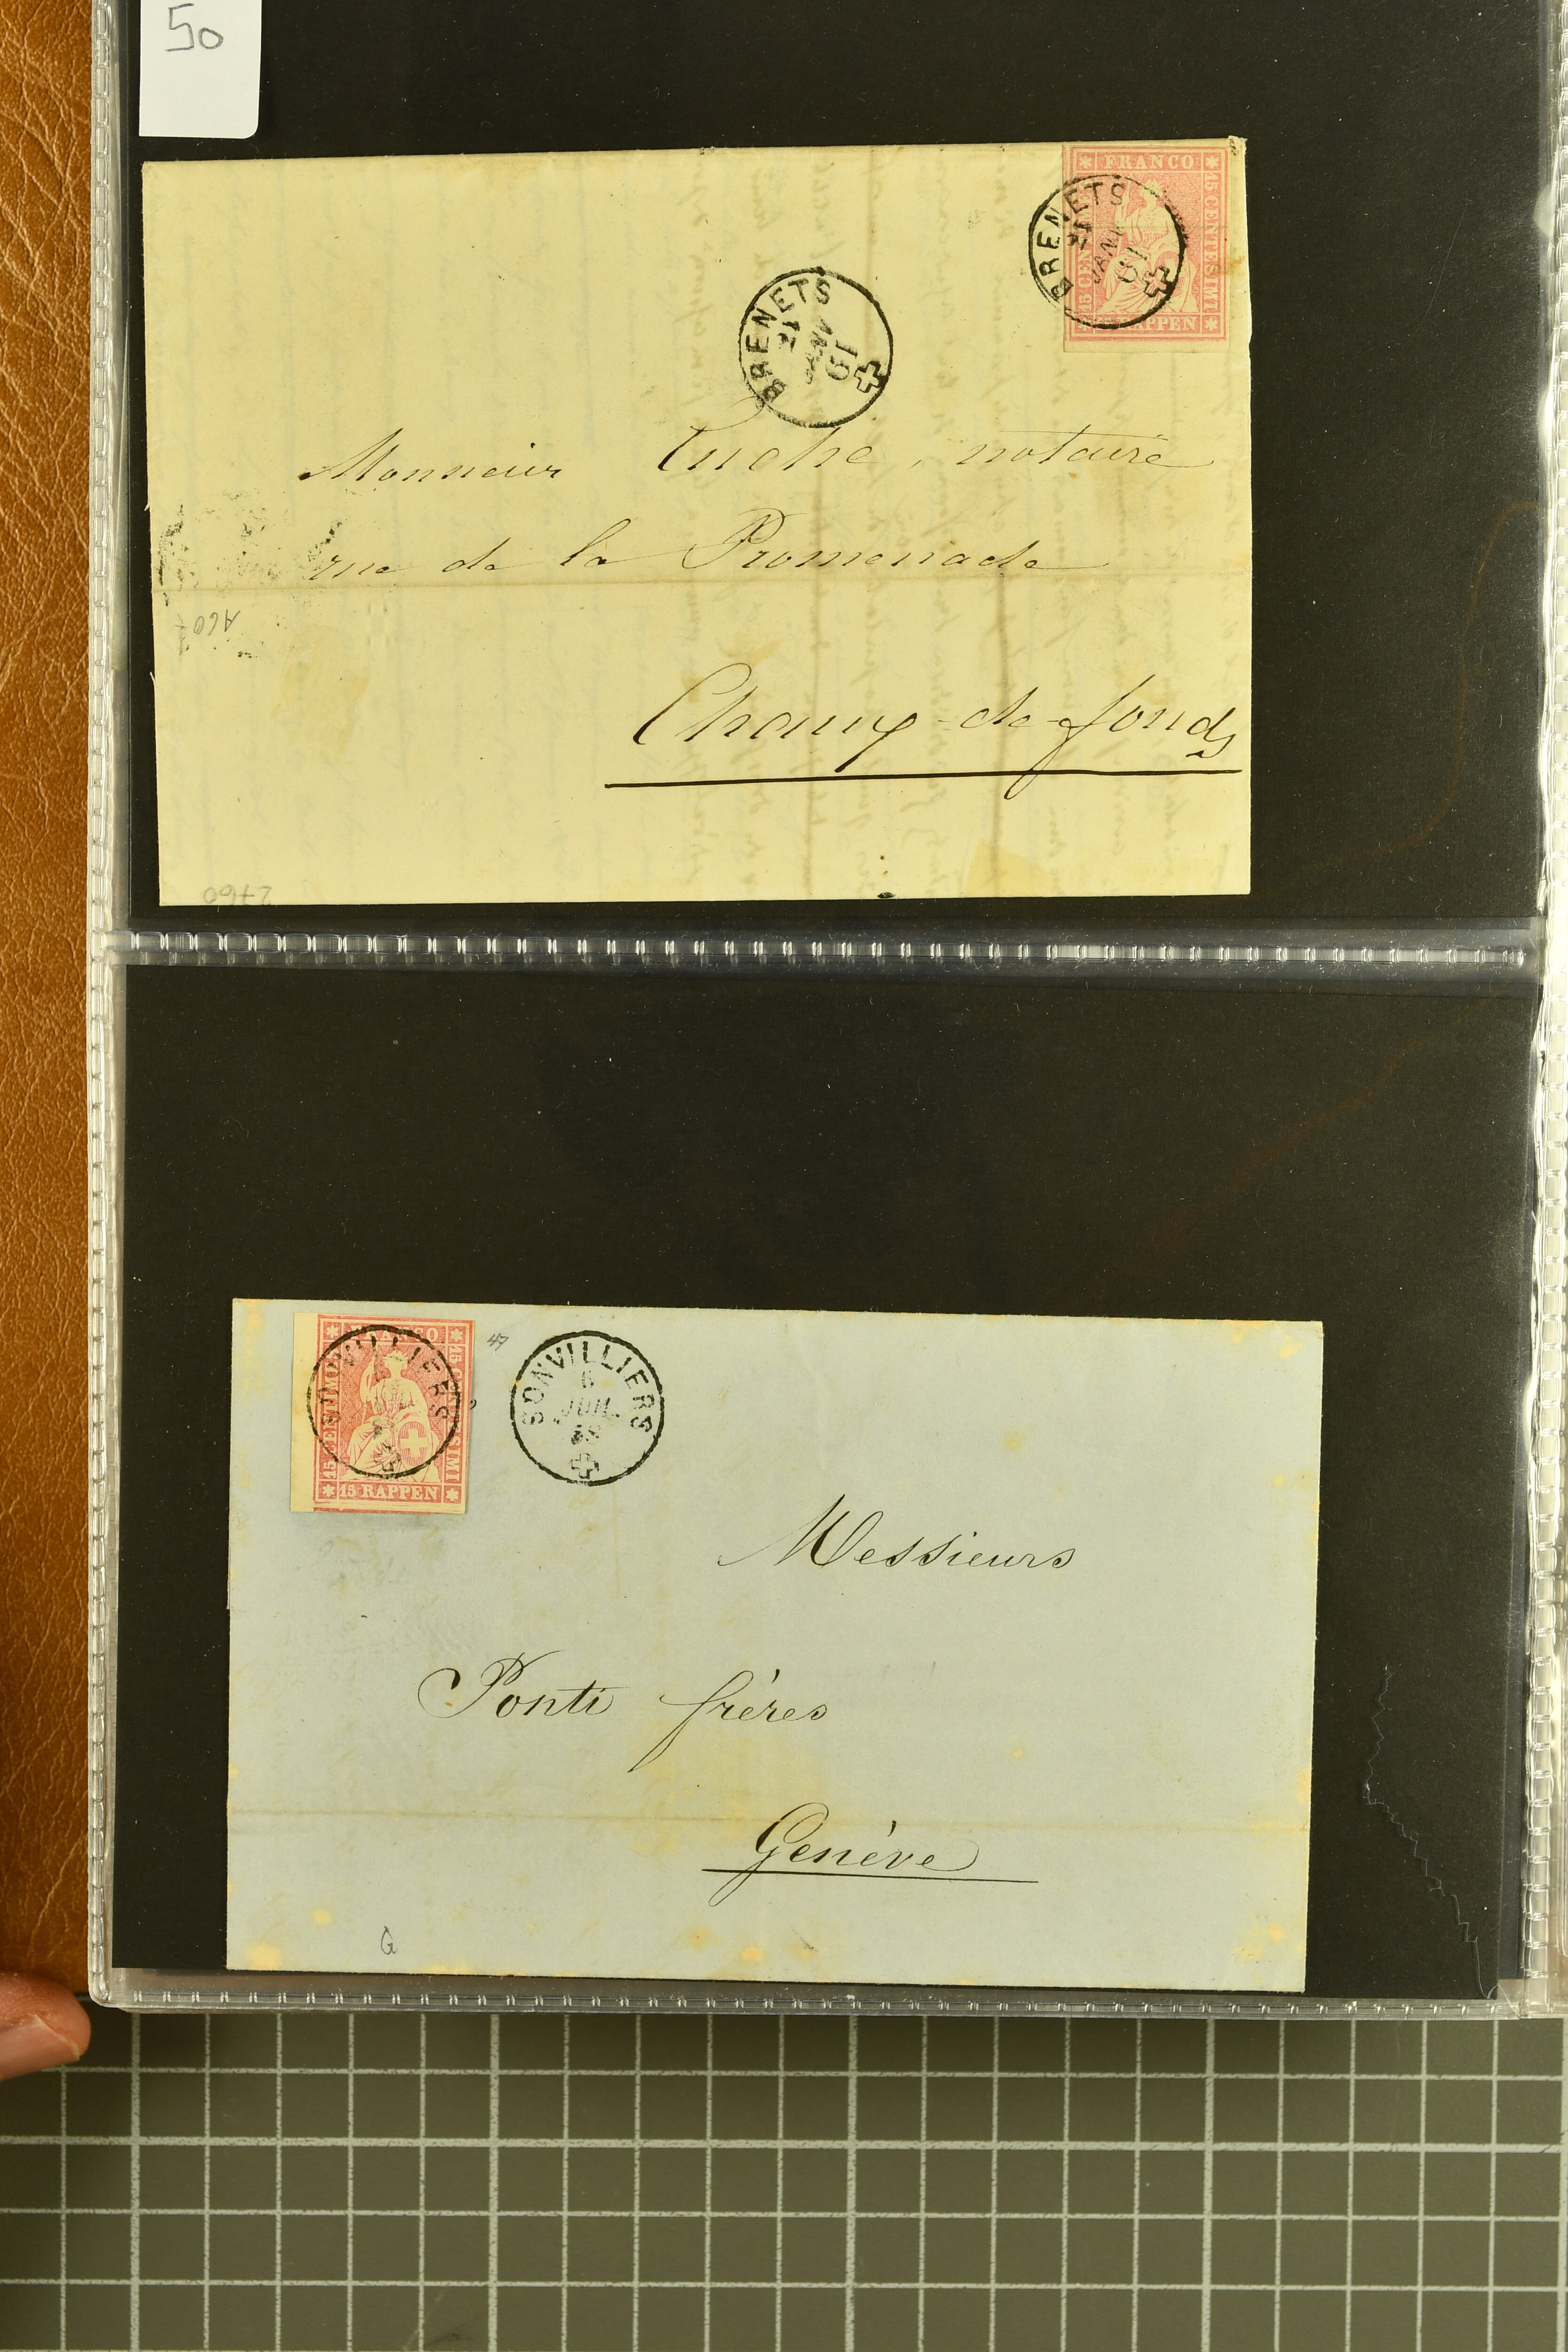 50
FRANCO
15 CENTESIMI
15 CEN
RAPPEN
BRENETS
21
JANV
61
BRENETS
21
JANV
61
Monsieur Cuche, notaire
rue de la Promenade
A60
Chaux-de-fonds
2760
FRANCO
15 RAPPEN
SONVILLIERS
47
SONVILLIERS
6
JUIL
Messieurs
Ponti frères
Genève
G